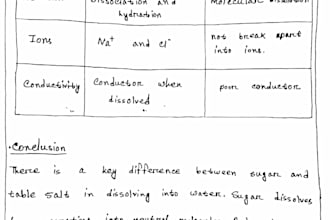 Dissociation and
hydration
Ions Na⁺ and Cl⁻ not break apart
into ions.
Conductivity Conductor when poor conductor
dissolved
Conclusion
There is a key difference between sugar and
table salt in dissolving into water. Sugar dissolves